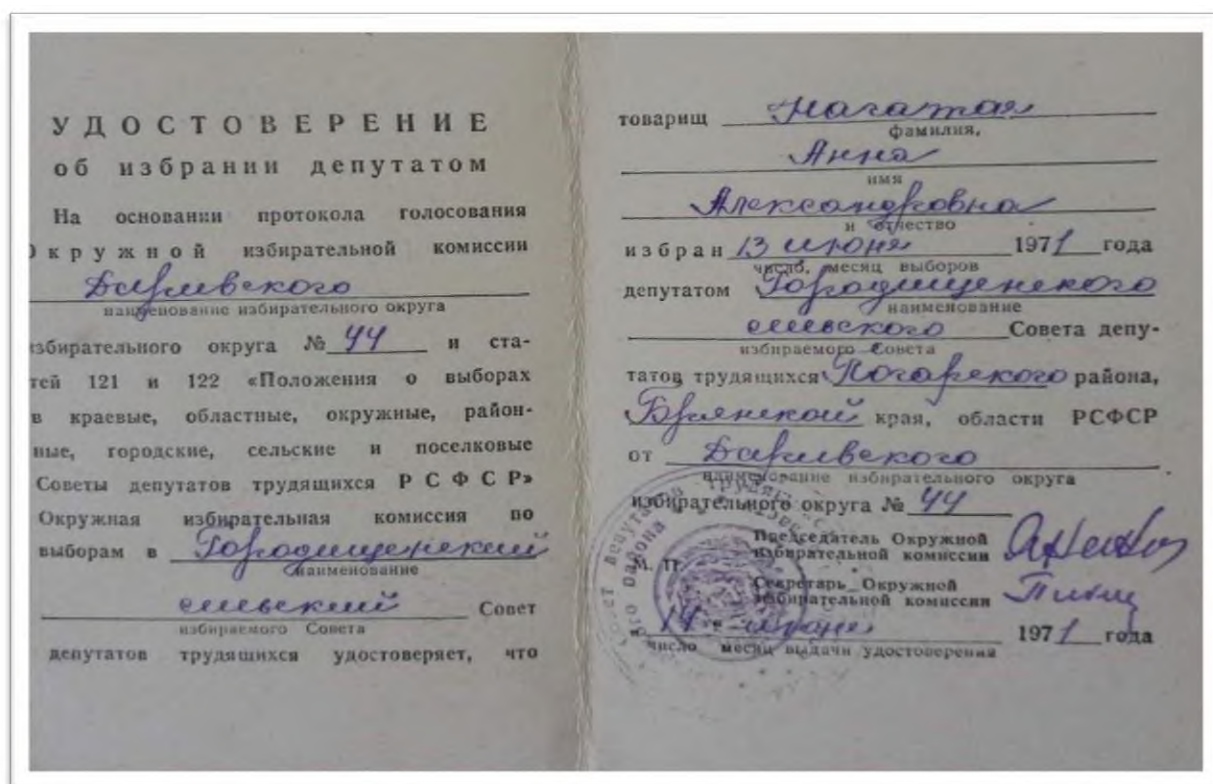 УДОСТОВЕРЕНИЕ
об избрании депутатом
На основании протокола голосования
Окружной избирательной комиссии
наименование избирательного округа
избирательного округа № 44 и ста-
тей 121 и 122 «Положения о выборах
в краевые, областные, окружные, район-
ные, городские, сельские и поселковые
Советы депутатов трудящихся РСФСР»
Окружная избирательная комиссия по
выборам в Городищенский
наименование
сельский Совет
избираемого Совета
депутатов трудящихся удостоверяет, что
товарищ
фамилия,
Анна
имя
Александровна
и отчество
избран 13 июня 1971 года
число, месяц выборов
депутатом Городищенского
наименование
сельского Совета депу-
избираемого Совета
татов трудящихся Погарского района,
Брянской края, области РСФСР
от
наименование избирательного округа
избирательного округа № 44
Председатель Окружной
избирательной комиссии
М. П.
Секретарь Окружной
избирательной комиссии
14 июня 1971 года
число месяц выдачи удостоверения